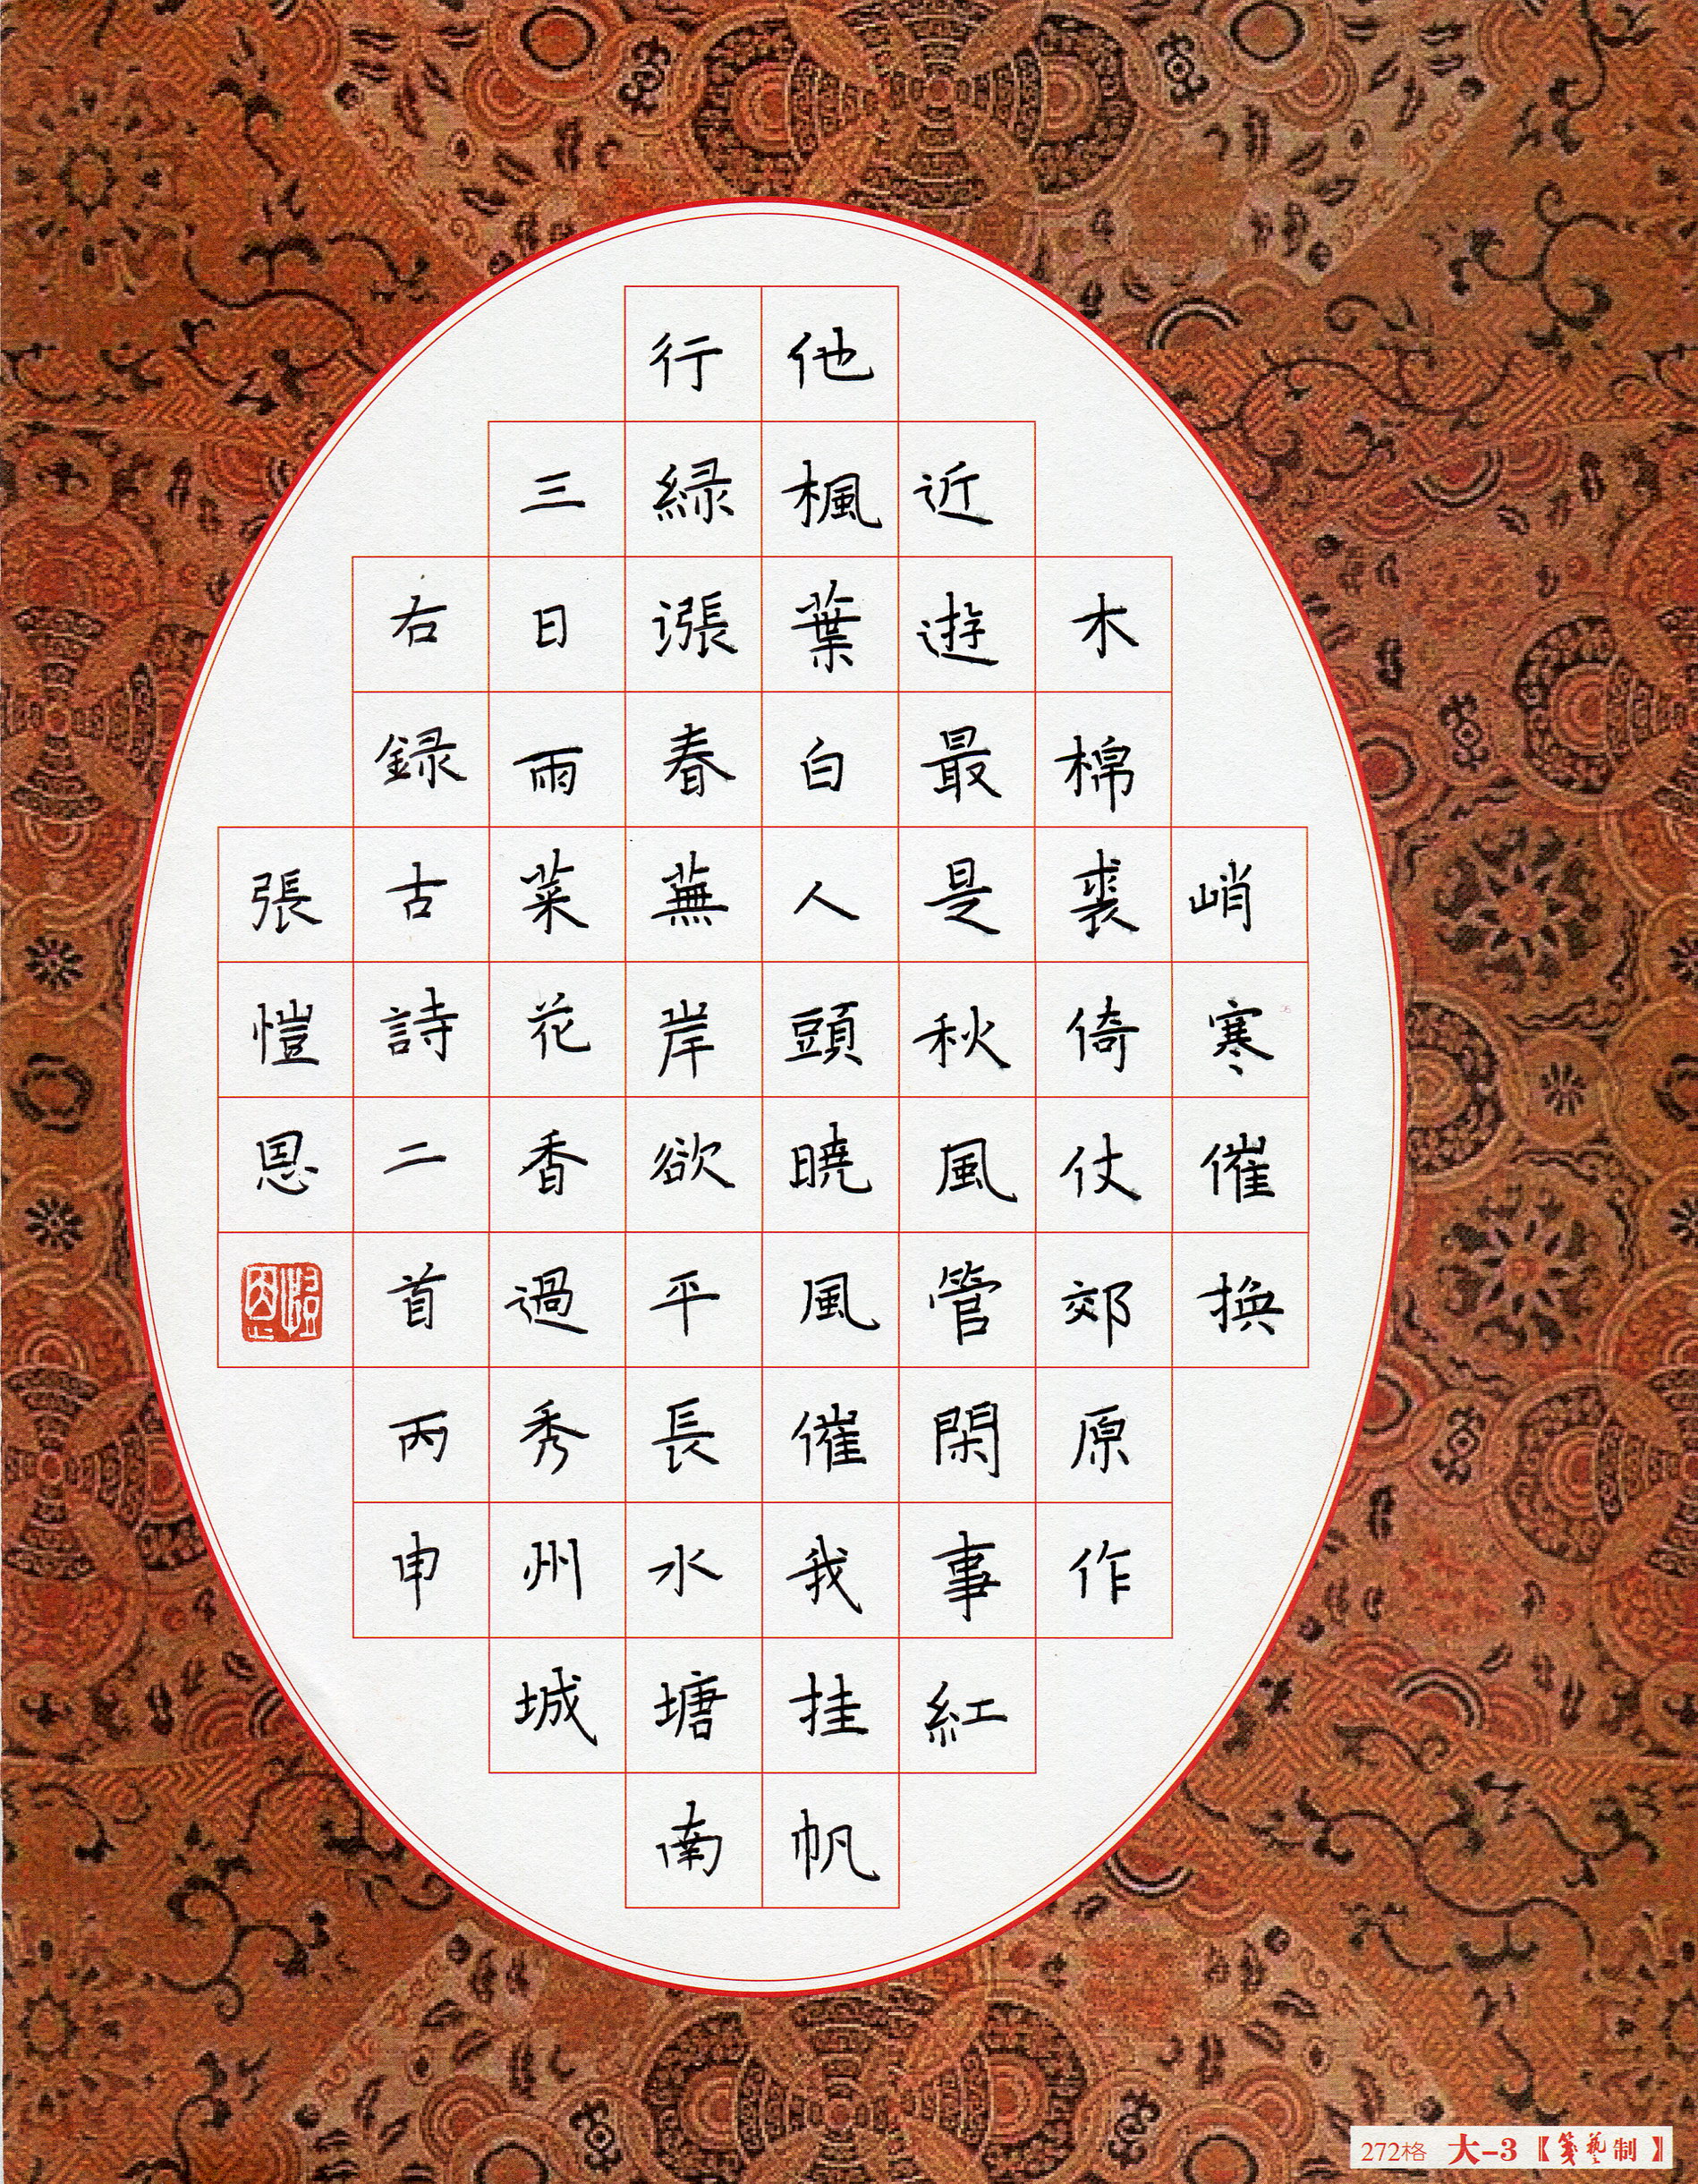 峭寒催換
木棉裘倚仗郊原作
近遊最是秋風管閑事紅
他楓葉白人頭曉風催我挂帆
行綠漲春蕪岸欲平長水塘南
三日雨菜花香過秀州城
右錄古詩二首丙申
張愷恩
272格 大-3【箋藝制】